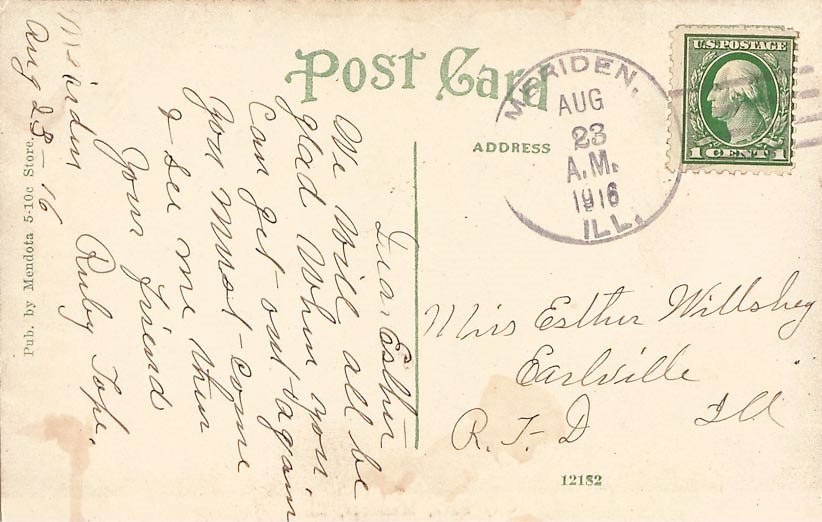 Post Card
ADDRESS
MERIDEN,
AUG
23
A.M.
1916
ILL.
U.S. POSTAGE
1 CENT 1
Miss Esther Willshey
Earlville
R.F.D Ill
12182
Dear Esther
We Will all be
glad When you
Can get out again
you Must come
& see me then
Your friend
Ruby Tope.
Meirden
Aug 23-16
Pub. by Mendota 5-10c Store.